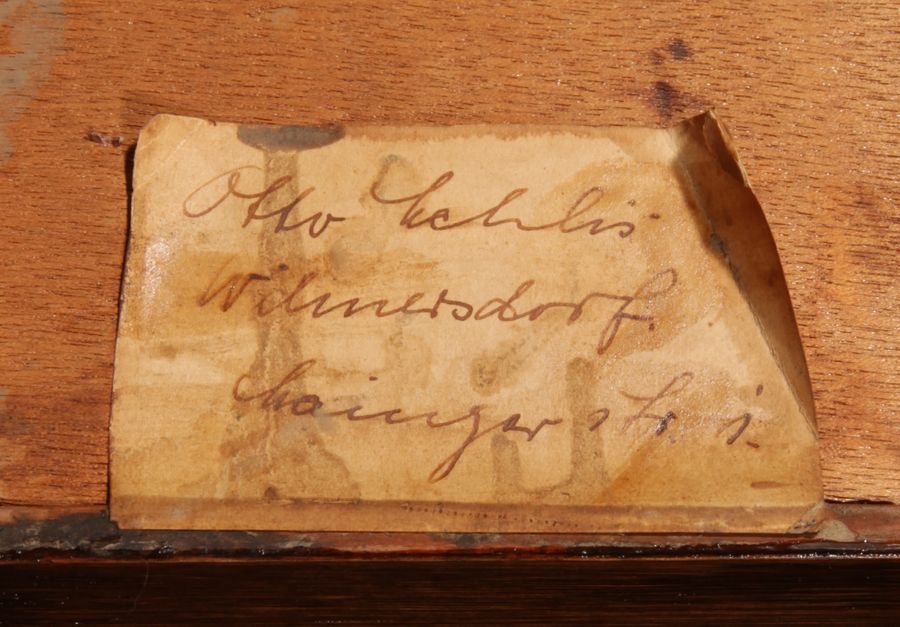 Otto Mehlis
Wilmersdorf.
Mainzer str. 1.